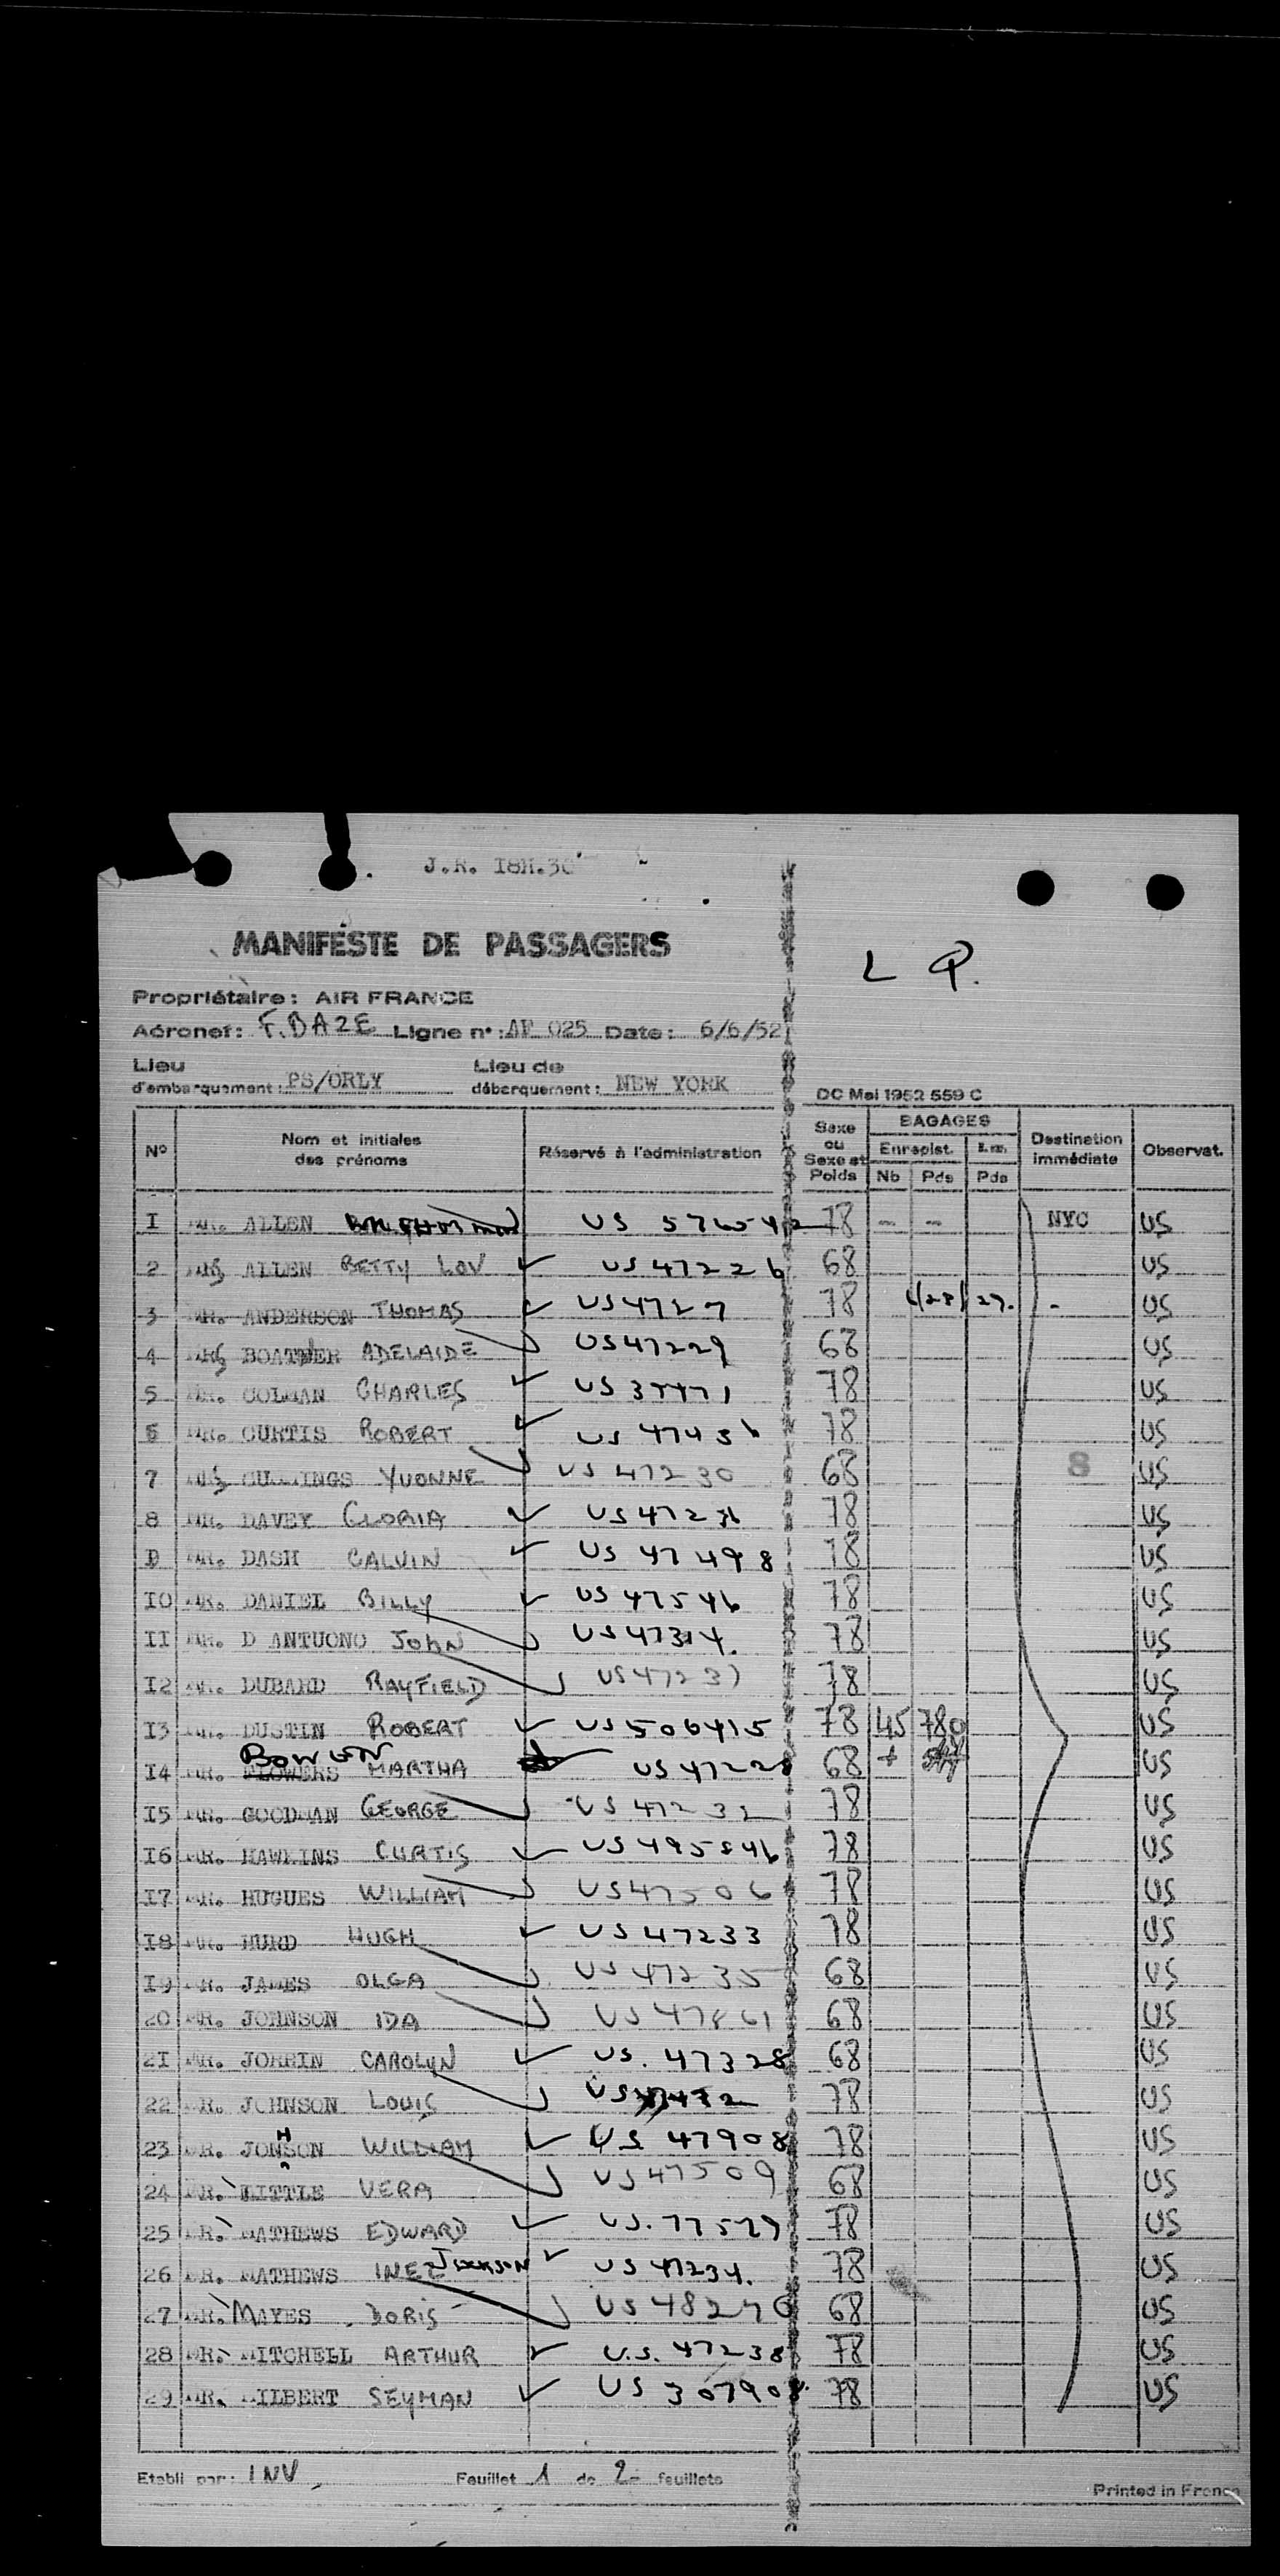 J.R. I8H.30
MANIFESTE DE PASSAGERS
L P.
Propriétaire: AIR FRANCE
Aéronef: F.BAZE Ligne n°: AF 025 Date: 6/6/52
Lieu d'embarquement: PS/ORLY Lieu de débarquement: NEW YORK
DC Mai 1952 559 C
N° Nom et initiales des prénoms Réservé à l'administration Sexe ou Sexe et Poids BAGAGES Enregist. Nb Pds Pds Destination immédiate Observat.
I MR. ALLEN US 78 - - NYC US
2 MRS ALLEN BETTY LOV US 47226 68 US
3 MR. ANDERSON THOMAS US 4727 78 US
4 MRS BOATNER ADELAIDE US 47229 68 US
5 MR. COLMAN CHARLES US 78 US
6 MR. CURTIS ROBERT US 78 US
7 MRS CUMMINGS YVONNE US 47230 68 8 US
8 MR. DAVEY GLORIA US 78 US
9 MR. DASH CALVIN US 47498 78 US
IO MR. DANIEL BILLY US 47546 78 US
II MR. D ANTUONO JOHN US 47314. 78 US
I2 MR. DUBARD RAYFIELD US 78 US
I3 MR. DUSTIN ROBERT US 506415 78 45 780 US
I4 MR. FLOWERS BOWEN MARTHA US 47228 68 + US
I5 MR. GOODMAN GEORGE US 47232 78 US
I6 MR. HAWKINS CURTIS US 495846 78 US
I7 MR. HUGUES WILLIAM US 47506 78 US
I8 MR. HURD HUGH US 47233 78 US
I9 MR. JAMES OLGA US 47235 68 US
20 MR. JOHNSON IDA US 47861 68 US
2I MR. JORRIN CAROLYN US. 47328 68 US
22 MR. JOHNSON LOUIS US 78 US
23 MR. JONHSON WILLIAM US 47908 78 US
24 MR. LITTLE VERA US 47509 68 US
25 MR. MATHEWS EDWARD US. 77529 78 US
26 MR. MATHEWS INEZ JACKSON US 47234. 78 US
27 MR. MAYES DORIS US 48276 68 US
28 MR. MITCHELL ARTHUR U.S. 47238 78 US
29 MR. MILBERT SEYMAN US 307908 78 US
Etabli par: INV Feuillet 1 de 2 feuillets
Printed in France